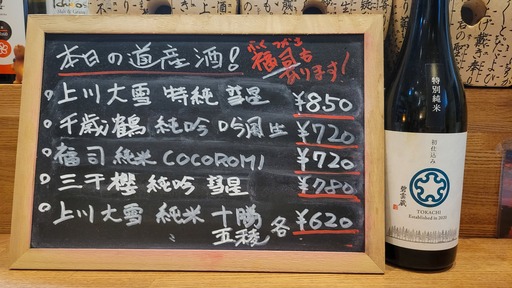 本日の道産酒!
ふくつかさ
福司も
あります!
上川大雪 特純 彗星 ¥850
千歳鶴 純吟 吟風生 ¥720
福司 純米 COCOROMI ¥720
三千櫻 純吟 彗星 ¥780
上川大雪 純米 十勝
五稜 各 ¥620
特別純米
初仕込み
碧雲蔵
TOKACHI
Established in 2020